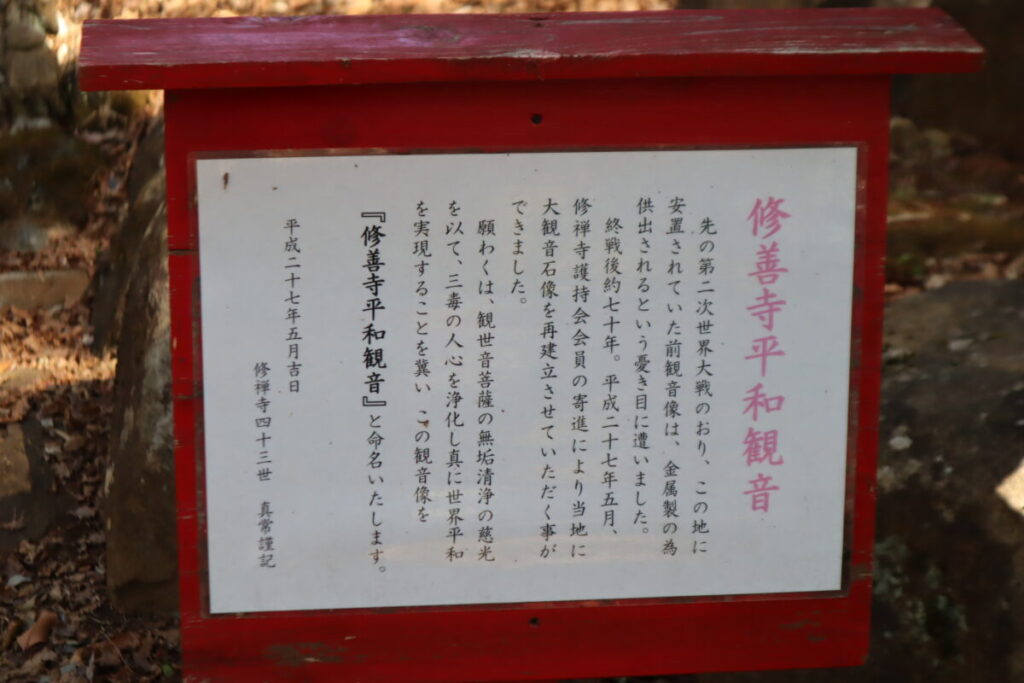 修善寺平和観音
先の第二次世界大戦のおり、この地に
安置されていた前観音像は、金属製の為
供出されるという憂き目に遭いました。
終戦後約七十年。平成二十七年五月、
修禅寺護持会会員の寄進により当地に
大観音石像を再建立させていただく事が
できました。
願わくは、観世音菩薩の無垢清浄の慈光
を以て、三毒の人心を浄化し真に世界平和
を実現することを冀い この観音像を
『修善寺平和観音』と命名いたします。
平成二十七年五月吉日
修禅寺四十三世 真常謹記